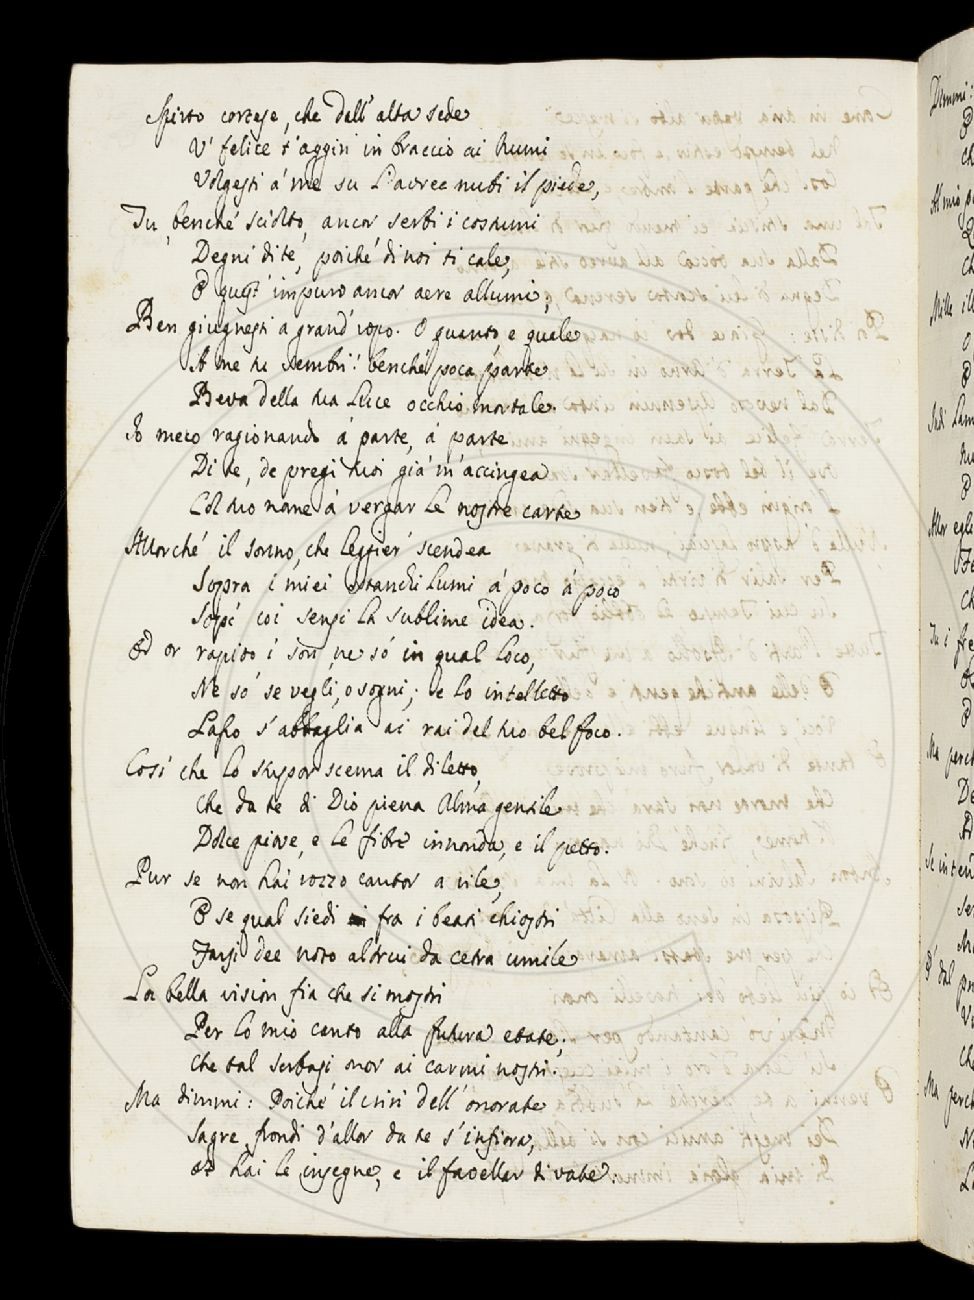 Spirto cortese, che dall' alta sede
V' felice t' aggiri in braccio ai Numi
Volgesti á me su l'auree nubi il piede,
Tu, benché sciolto, ancor serbi i costumi
Degni di té, poiché di noi ti cale,
E quest' impuro ancor aere allumi;
Ben giugnesti a grand' uopo. O quanto, e quale
A me tu sembri! benché poca parte
Beva della tua luce occhio mortale.
Io meco ragionando á parte, á parte
Di te, de pregi tuoi giá m' accingea
Col tuo nome á vergar le nostre carte
Allorché il sonno, che leggier scendea
Sopra i miei stanchi lumi á poco á poco
Sopí coi sensi la sublime idea.
Ed or rapito i' son, ne só in qual loco,
Ne só se vegli, o sogni; e lo intelletto
Lasso s' abbaglia ai rai del tuo bel foco.
Cosí che lo stupor scema il diletto,
Che da te di Dio piena Alma gentile
Dolce piove, e le fibre innonda, e il petto.
Pur se non hai rozzo cantor a vile,
E se qual siedi fra i beati chiostri
Farsi dee noto altrui da cetra umile
La bella vision fia che si mostri
Per lo mio canto alla futura etate;
Che tal serbasi onor ai carmi nostri.
Ma dimmi: Poiché il crin dell' onorate
Sagre frondi d'allor da te s' infiora,
Ed hai le insegne, e il favellar di vate.